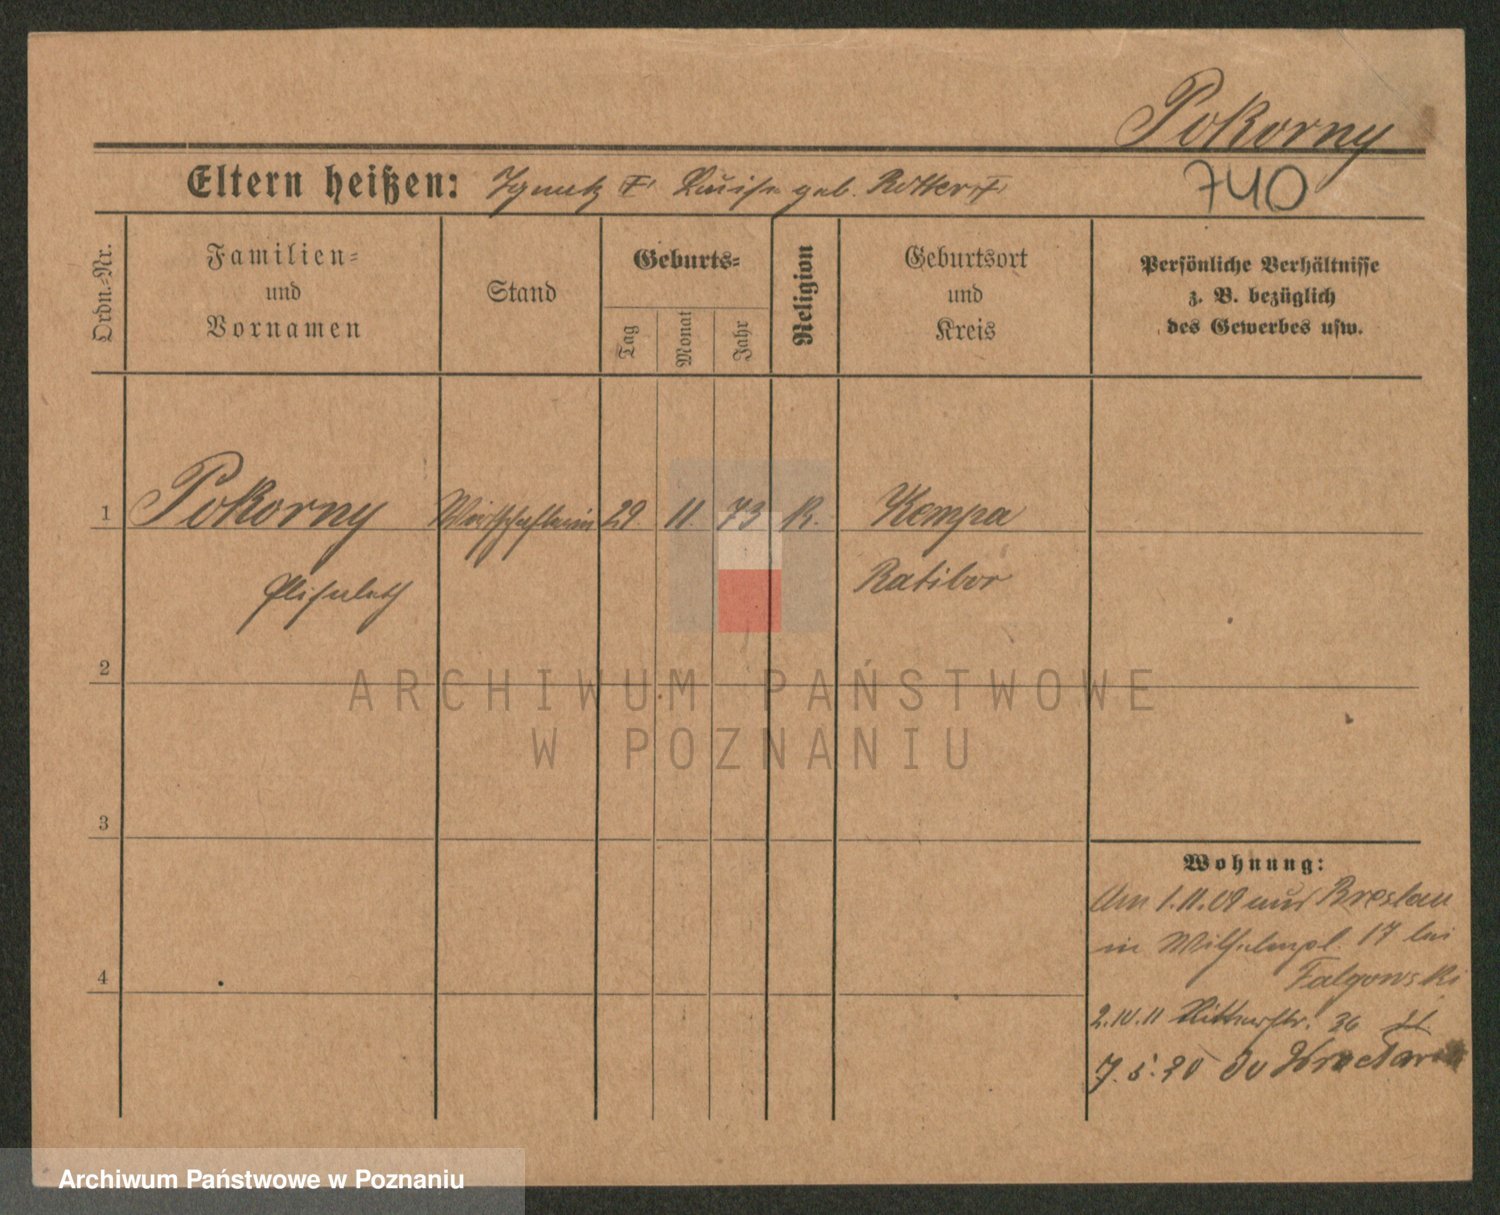 Pokorny
740
Eltern heißen: Ignatz † Luise geb. Rotter †
Ordn.-Nr.
Familien-
und
Vornamen
Stand
Geburts-
Tag
Monat
Jahr
Religion
Geburtsort
und
Kreis
Persönliche Verhältnisse
z. B. bezüglich
des Gewerbes usw.
1 Pokorny Wirtschafterin 29 11. 73 K. Kempa
Elisabeth Ratibor
2
3
4
Wohnung:
Am 1.11.09 aus Breslau
in Wilhelmpl. 17 bei
Falgowski
2.IV.11 Ritterstr. 36
7.5.20 do Wrocławia
ARCHIWUM PAŃSTWOWE
W POZNANIU
Archiwum Państwowe w Poznaniu